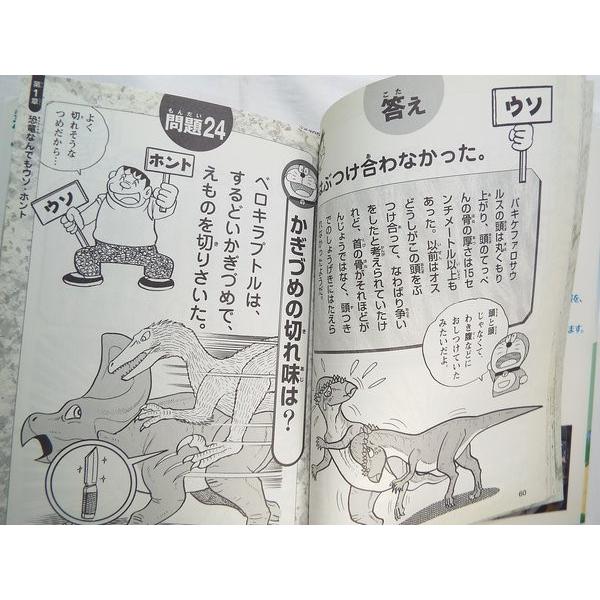 こた
答え
ウソ
ぶつけ合わなかった。
パキケファロサウ
ルスの頭は丸くもり
上がり、頭のてっぺ
んの骨の厚さは15セ
ンチメートル以上も
あった。以前はオス
どうしがこの頭をぶ
つけ合って、なわばり争い
をしたと考えられていたけ
れど、首の骨がそれほどが
んじょうではなく、頭つき
でのしょうげきにはたえら
れなかったようだ。
頭と頭
じゃなくて
わき腹などに
おしつけていた
みたいだよ。
60
もんだい
問題24
かぎづめの切れ味は？
ベロキラプトルは、
するどいかぎづめで、
えものを切りさいた。
ホント
ウソ
よく
切れそうな
つめだから…
第1章
恐竜なんでもウソ・ホント